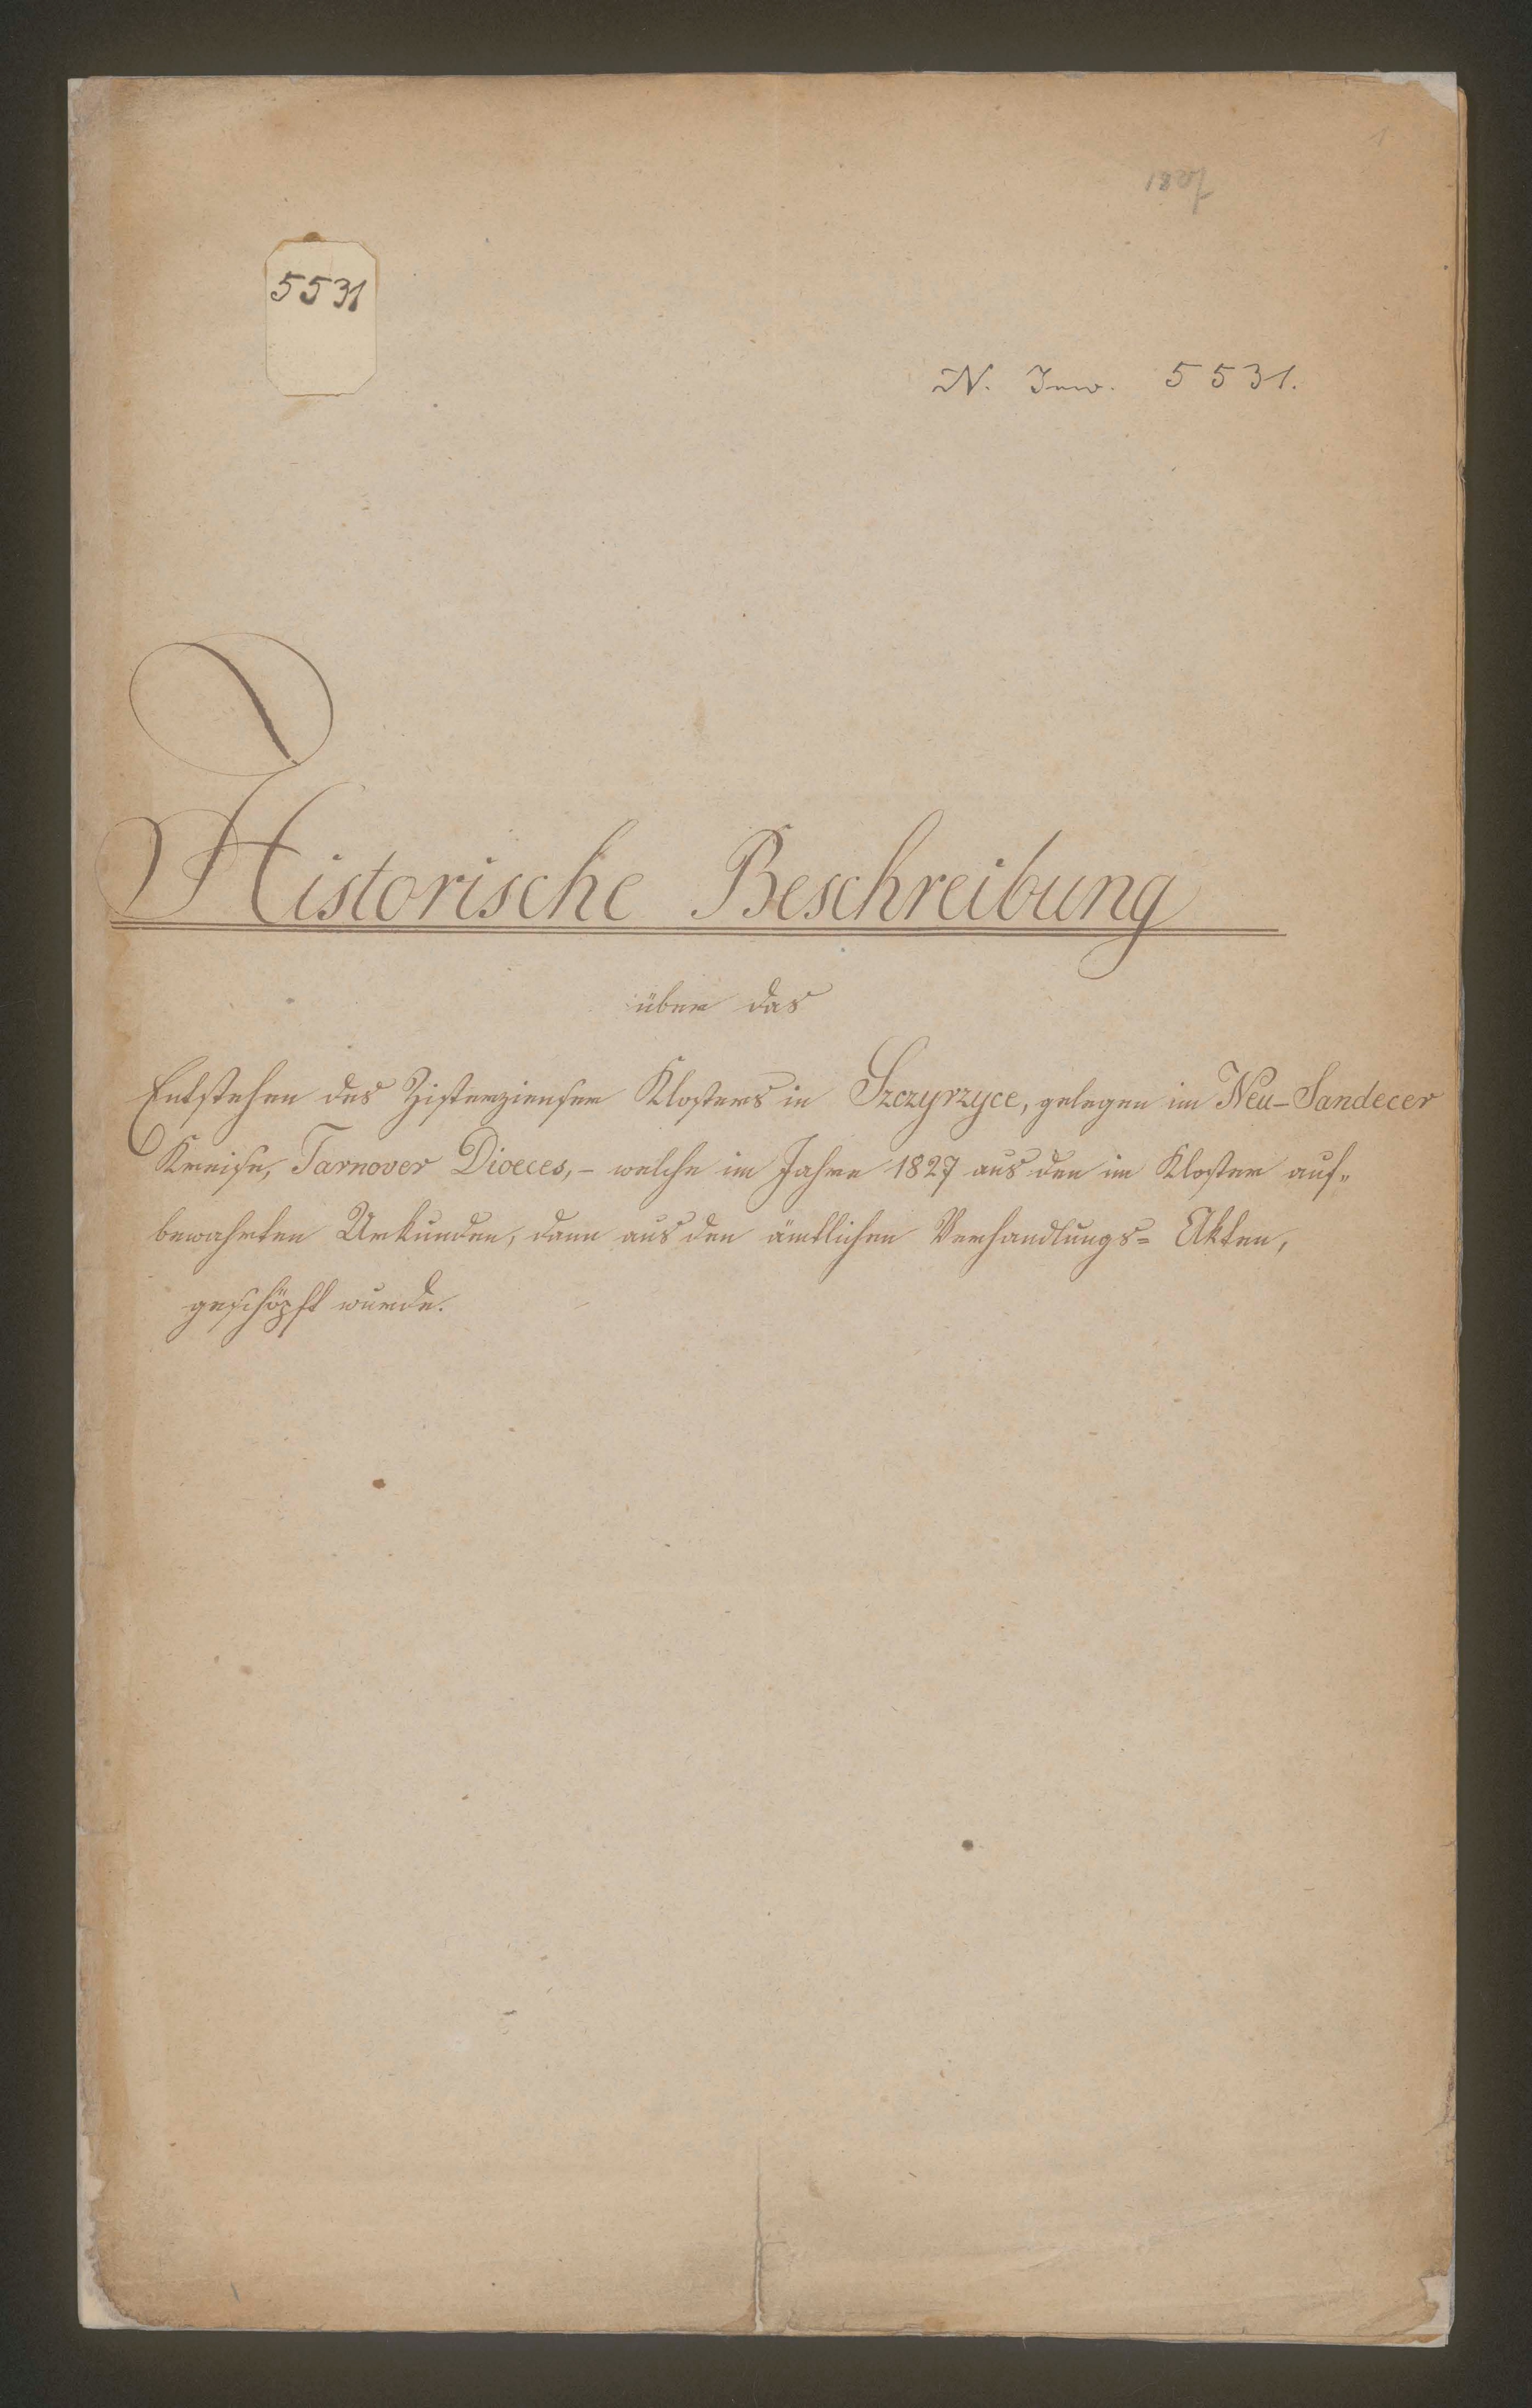 1
1827
5531
N. Inw. 5531.
Historische Beschreibung
über das
Entstehen des Zisterzienser Klosters in Szczyrzyce, gelegen im Neu-Sandecer
Kreise, Tarnover Dioeces, - welche im Jahre 1827 aus den im Kloster auf-
bewahrten Urkunden, dann aus den ämtlichen Verhandlungs- Akten,
geschöpft wurde.